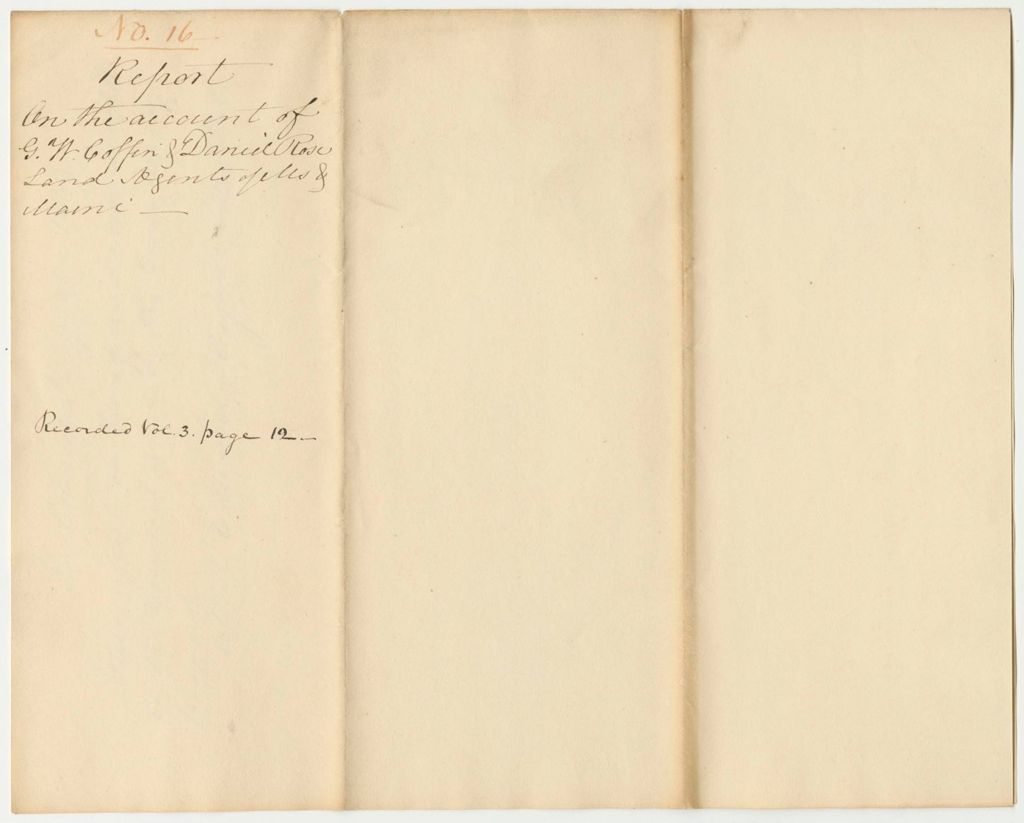 No. 16
Report
On the account of
G. W. Coffin & Daniel Rose
Land Agents of Ms &
Maine —
Recorded Vol. 3. page 12 —